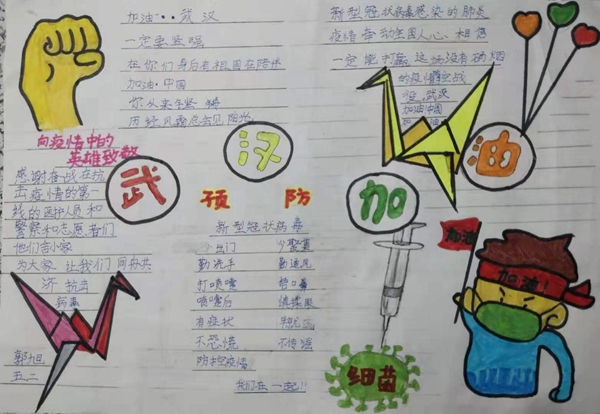 加油··武汉
一定要坚强
在你们身后有祖国在陪伴
加油·中国
你从来
历经风霜总会见阳光
新型冠状病毒感染的肺炎
疫情牵动全国人心,相信
一定能打赢这场没有硝烟
的疫情
武汉
加油中国
向疫情中的
英雄致敬
感谢奋战在抗
击疫情的第一
线的医护人员和
警察和志愿者们
他们舍小家
为大家 让我们同舟共
济 抗击
郭旭
五二
武
汉
加
油
预防
新型冠状病毒
少出门 少聚集
勤洗手 勤通风
打喷嚏
喷嚏后
有症状
不恐慌 不传谣
防控疫情
我们在一起!!
细菌
加油
加油!